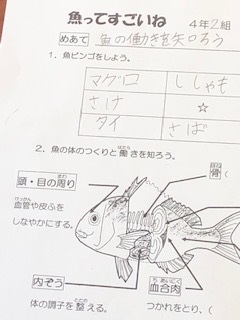 魚ってすごいね
4年2組
めあて 魚の働きを知ろう
1.魚ビンゴをしよう。
マグロ ししゃも
さけ ☆
タイ さば
2.魚の体のつくりと働きを知ろう。
はたら
頭・目の周り
骨(
けっかん ひふ
血管や皮ふを
しなやかにする。
内ぞう
血合肉
体の調子を整える。
つかれをとり、(